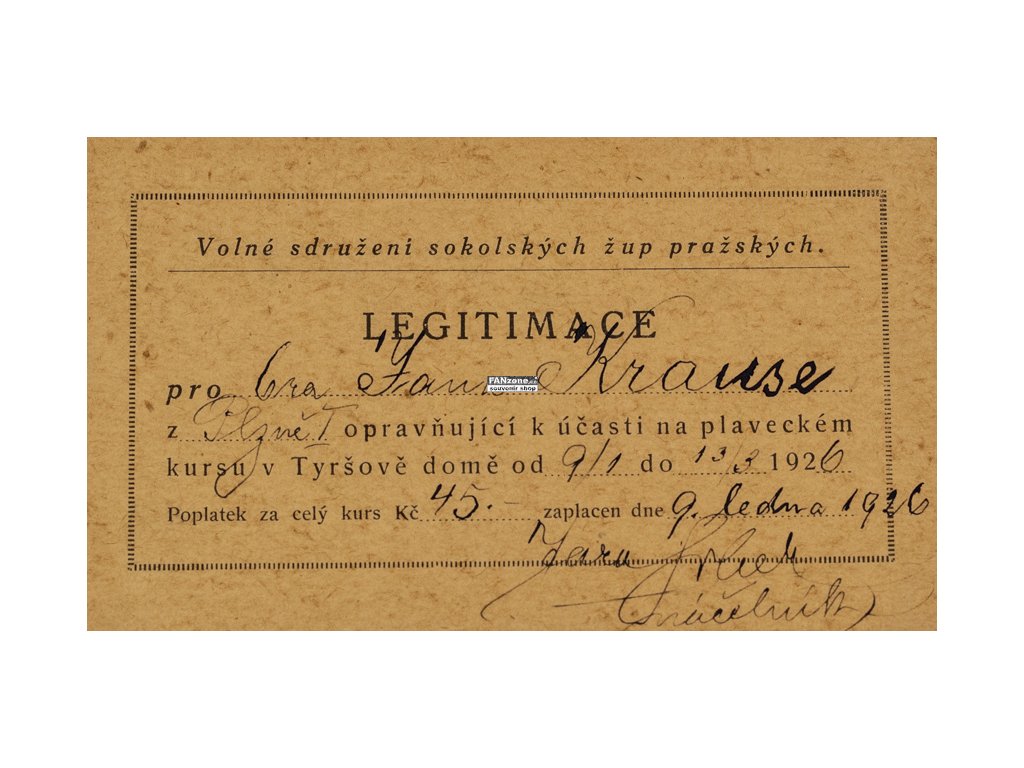 Volné sdružení sokolských žup pražských.
LEGITIMACE
pro bra Krause
FANzone.cz
souvenir shop
z Plzně I opravňující k účasti na plaveckém
kursu v Tyršově domě od 9/1 do 13/3 1926
Poplatek za celý kurs Kč 45.- zaplacen dne 9. ledna 1926
náčelník